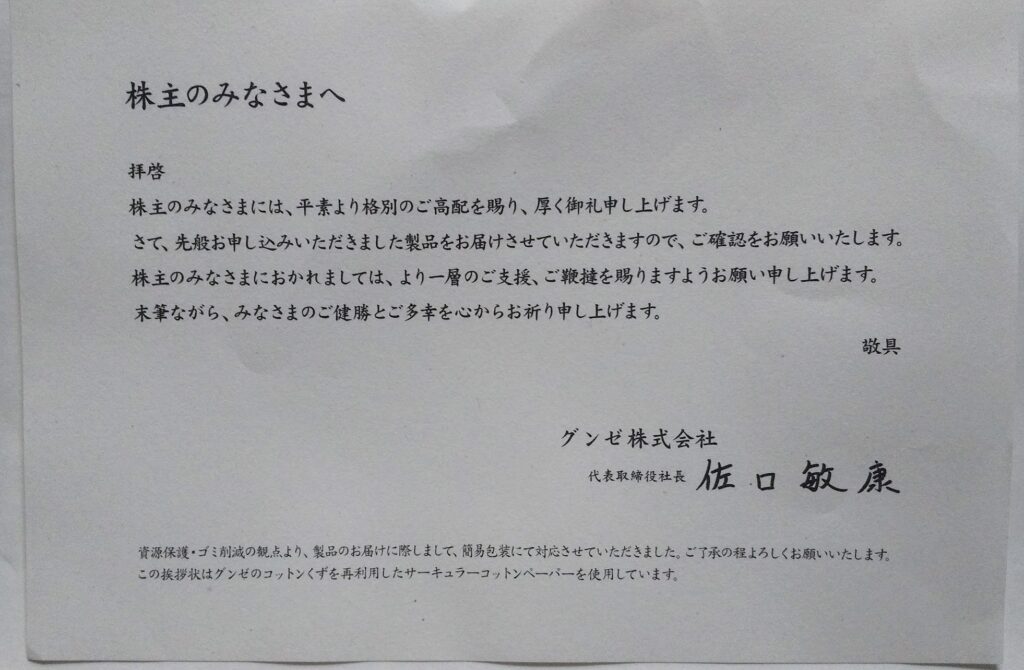 株主のみなさまへ
拝啓
株主のみなさまには、平素より格別のご高配を賜り、厚く御礼申し上げます。
さて、先般お申し込みいただきました製品をお届けさせていただきますので、ご確認をお願いいたします。
株主のみなさまにおかれましては、より一層のご支援、ご鞭撻を賜りますようお願い申し上げます。
末筆ながら、みなさまのご健勝とご多幸を心からお祈り申し上げます。
敬具
グンゼ株式会社
代表取締役社長 佐口敏康
資源保護・ゴミ削減の観点より、製品のお届けに際しまして、簡易包装にて対応させていただきました。ご了承の程よろしくお願いいたします。
この挨拶状はグンゼのコットンくずを再利用したサーキュラーコットンペーパーを使用しています。